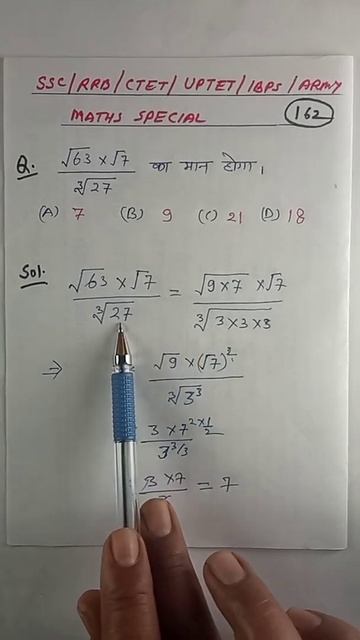 SSC/RRB/CTET/UPTET/IBPS/ARMY
MATHS SPECIAL 162
Q. √63 × √7 / ∛27 का मान होगा।
(A) 7 (B) 9 (C) 21 (D) 18
Sol: √63 × √7 / ∛27 = √9×7 × √7 / ∛3×3×3
⇒ √9 × (√7)² / ∛3³
3 × 7^2×1/2 / 3^3/3
3 × 7 / = 7